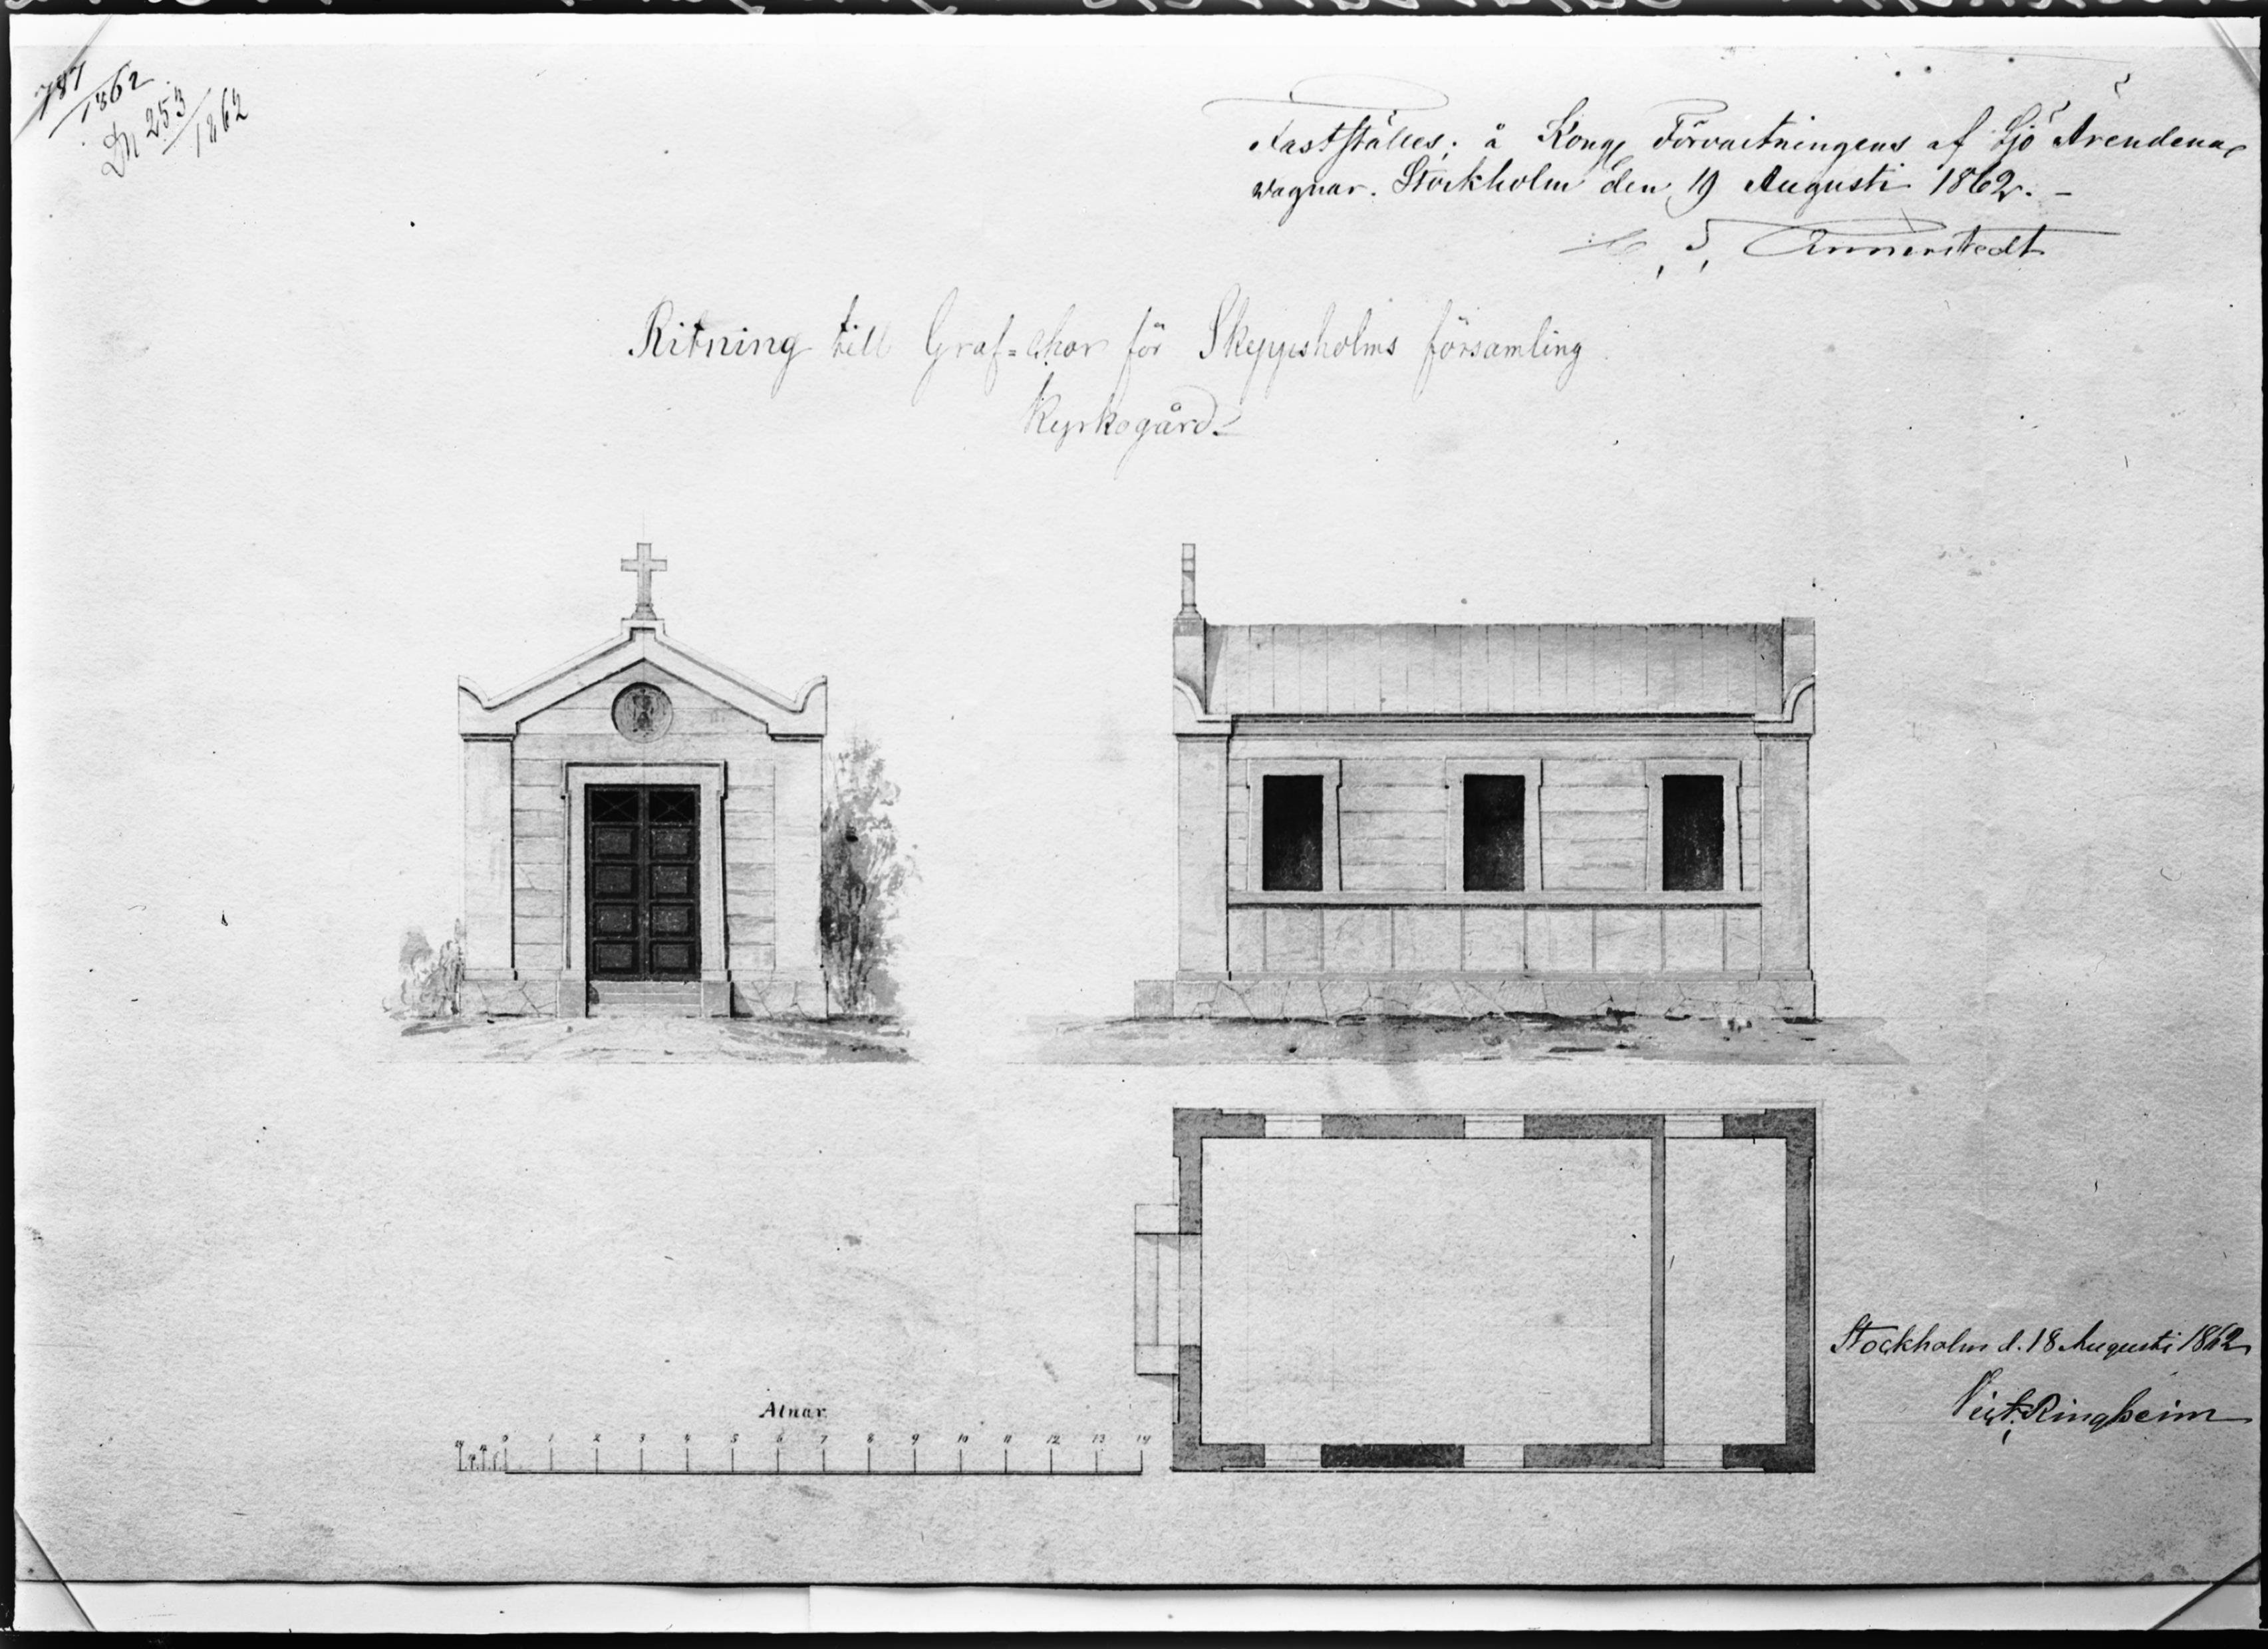 787/1862
Dn 253/1862
Fastställes; å Kongl Förvaltningens af Sjö Ärendena
wägnar. Stockholm den 19 Augusti 1862. –
Annerstedt
Ritning till Graf=chor för Skeppsholms församling
Kyrkogård.
Alnar.
0 1 2 3 4 5 6 7 8 9 10 11 12 13 14
Stockholm d. 18 Augusti 1862
Vict. Ringheim